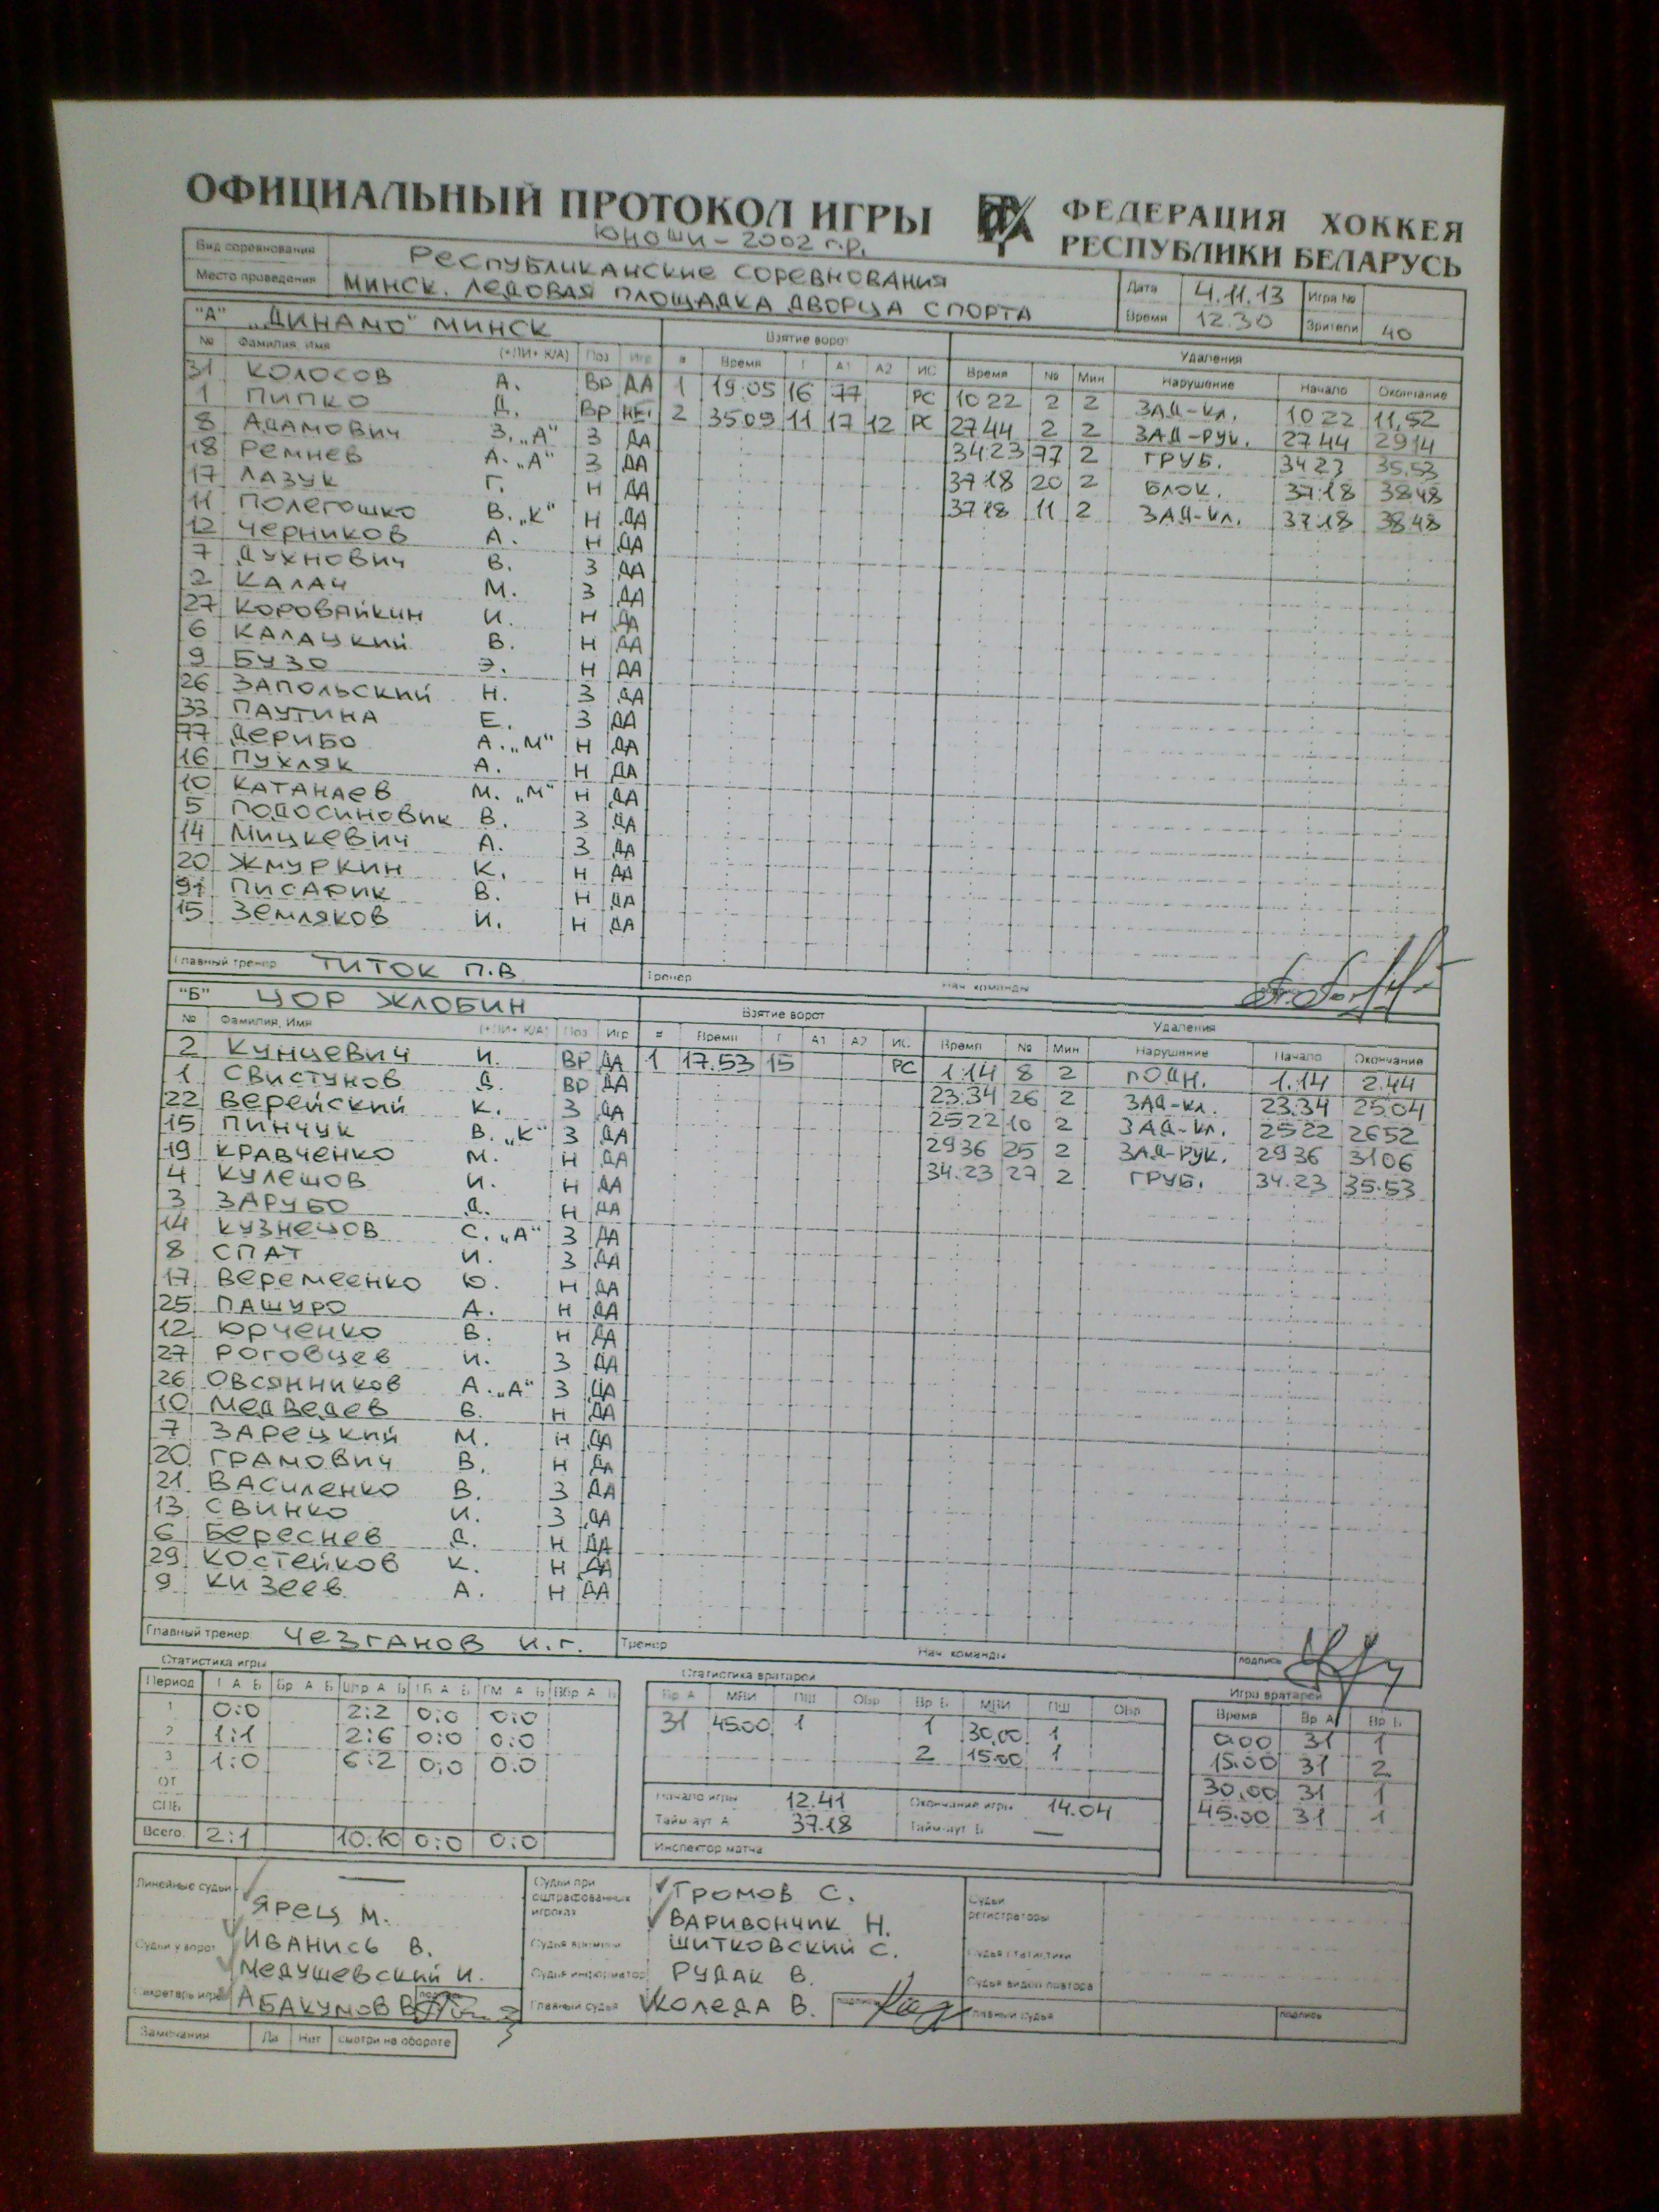 ОФИЦИАЛЬНЫЙ ПРОТОКОЛ ИГРЫ
ФЕДЕРАЦИЯ ХОККЕЯ
РЕСПУБЛИКИ БЕЛАРУСЬ
ЮНОШИ - 2002 г.р.
Вид соревнования РЕСПУБЛИКАНСКИЕ СОРЕВНОВАНИЯ
Место проведения МИНСК. ЛЕДОВАЯ ПЛОЩАДКА ДВОРЦА СПОРТА
Дата 4.11.13 Игра №
Время 12.30 Зрители 40
"А" „ДИНАМО" МИНСК Взятие ворот Удаления
№ Фамилия, Имя (+ЛИ+ К/А) Поз Игр # Время Г А1 А2 ИС Время № Мин Нарушение Начало Окончание
31 КОЛОСОВ А. ВР ДА 1 19.05 16 77 РС 10 22 2 2 ЗАД-КЛ. 10 22 11,52
1 ПИПКО Д. ВР НЕТ 2 35.09 11 17 12 РС 27 44 2 2 ЗАД-РУК. 27 44 29 14
8 АДАМОВИЧ З. „А" З ДА 34 23 77 2 ГРУБ. 34 23 35.53
18 РЕМНЕВ А. „А" З ДА 37 18 20 2 БЛОК. 37.18 38 48
17 ЛАЗУК Г. Н ДА 37 18 11 2 ЗАД-КЛ. 37.18 38 48
11 ПОЛЕГОШКО В. „К" Н ДА
12 ЧЕРНИКОВ А. Н ДА
7 ДУХНОВИЧ В. З ДА
2 КАЛАЧ М. З ДА
27 КОРОВАЙКИН И. Н ДА
6 КАЛАЦКИЙ В. Н ДА
9 БУЗО Э. Н ДА
26 ЗАПОЛЬСКИЙ Н. З ДА
33 ПАУТИНА Е. З ДА
77 ДЕРИБО А. „М" Н ДА
16 ПУХЛЯК А. Н ДА
10 КАТАНАЕВ М. „М" Н ДА
5 ПОДОСИНОВИК В. З ДА
14 МИЦКЕВИЧ А. З ДА
20 ЖМУРКИН К. Н ДА
91 ПИСАРИК В. Н ДА
15 ЗЕМЛЯКОВ И. Н ДА
Главный тренер ТИТОК П.В Тренер Нач. команды подпись
"Б" ЦОР ЖЛОБИН Взятие ворот Удаления
№ Фамилия, Имя (+ЛИ+ К/А) Поз Игр # Время Г А1 А2 ИС Время № Мин Нарушение Начало Окончание
2 КУНЦЕВИЧ И. ВР ДА 1 17.53 15 РС 1.14 8 2 ПОДН. 1.14 2.44
1 СВИСТУНОВ Д. ВР ДА 23.34 26 2 ЗАД-КЛ. 23.34 25.04
22 ВЕРЕЙСКИЙ К. З ДА 25 22 10 2 ЗАД-КЛ. 25 22 26 52
15 ПИНЧУК В. „К" З ДА 29 36 25 2 ЗАД-РУК. 29 36 31 06
19 КРАВЧЕНКО М. Н ДА 34.23 27 2 ГРУБ. 34.23 35.53
4 КУЛЕШОВ И. Н ДА
3 ЗАРУБО Д. Н ДА
14 КУЗНЕЦОВ С. „А" З ДА
8 СПАТ И. З ДА
17 ВЕРЕМЕЕНКО Ю. Н ДА
25 ПАШУРО А. Н ДА
12 ЮРЧЕНКО В. Н ДА
27 РОГОВЦЕВ И. З ДА
26 ОВСЯННИКОВ А. „А" З ДА
10 МЕДВЕДЕВ В. Н ДА
7 ЗАРЕЦКИЙ М. Н ДА
20 ГРАМОВИЧ В. Н ДА
21 ВАСИЛЕНКО В. З ДА
13 СВИНКО И. З ДА
6 БЕРЕСНЕВ Д. Н ДА
29 КОСТЕЙКОВ К. Н ДА
9 КИЗЕЕВ А. Н ДА
Главный тренер ЧЕЗГАНОВ И.Г. Тренер Нач. команды подпись
Статистика игры Статистика вратарей Игра вратарей
Период Г А Б Бр А Б Штр А Б ГБ А Б ГМ А Б ВБр А Б Вр А МВИ ПШ ОБр Вр Б МВИ ПШ ОБр Время Вр А Вр Б
1 0:0 2:2 0:0 0:0 31 45.00 1 1 30,00 1 0.00 31 1
2 1:1 2:6 0:0 0:0 2 15.00 1 15.00 31 2
3 1:0 6:2 0:0 0:0 30.00 31 1
ОТ Начало игры 12.41 Окончание игры 14.04 45.00 31 1
СПБ Тайм-аут А 37.18 Тайм-аут Б —
Всего 2:1 10:10 0:0 0:0 Инспектор матча
Линейные судьи — Судьи при оштрафованных игроках ГРОМОВ С. Судьи регистраторы
ЯРЕЦ М. ВАРИВОНЧИК Н.
Судьи у ворот ИВАНИСЬ В. Судья времени ШИТКОВСКИЙ С. Судья статистики
МЕДУШЕВСКИЙ И. Судья информатор РУДАК В. Судья видео повтора
Секретарь игры АБАКУМОВ В подпись Главный судья КОЛЕДА В. подпись Главный судья подпись
Замечания Да Нет смотри на обороте